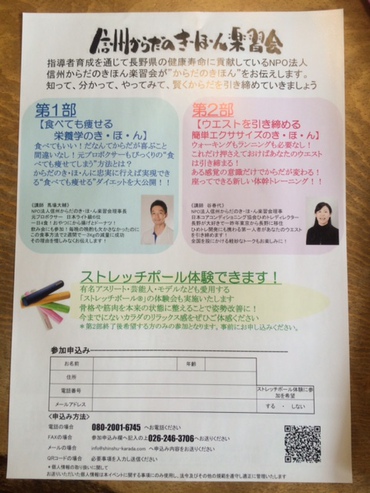 信州からだのき・ほ・ん楽習会
指導者育成を通じて長野県の健康寿命に貢献しているNPO法人
信州からだのきほん楽習会が“からだのきほん”をお伝えします。
知って、分かって、やってみて、賢くからだを引き締めていきましょう
第1部
【食べても痩せる
栄養学のき・ほ・ん】
食べてもいい！だなんてからだが喜ぶこと
間違いなし！元プロボクサーもびっくりの“食
べても痩せてしまう”方法とは？
からだのき・ほ・んに忠実に行えば実現でき
る“食べても痩せる”ダイエットを大公開！！
NPO法人信州からだのきほん楽習会理事長
元プロボクサー 日本ライト級6位
第2部
【ウエストを引き締める
簡単エクササイズのき・ほ・ん】
ウォーキングもランニングも必要なし！
これだけ押さえておけばあなたのウエスト
は引き締まる！
ある感覚の意識だけでからだが変わる！
座ってできる新しい体幹トレーニング！！
NPO法人信州からだのきほん楽習会理事
ストレッチポール体験できます！
有名アスリート・芸能人・モデルなども愛用する
「ストレッチポール®」の体験会も実施いたします
骨格や筋肉を本来の状態に整えることで姿勢改善に！
今までにないカラダのリラックス感をぜひご体感ください
＊第2部終了後希望する方のみの参加となります。事前にお申し込みください。
参加申込み
お名前
年齢
住所
電話番号
ストレッチポール体験に参
加を希望
メールアドレス
する ・ しない
<申込み方法>
電話の場合 080-2001-6745 へお電話ください
FAXの場合 参加申込み欄へ記入の上026-246-3706へお送りください
メールの場合 info@shinshu-karada.com へ申込み内容をお送りください
QRコードの場合 必要事項を入力し送信ください
＊個人情報の取り扱いに関して